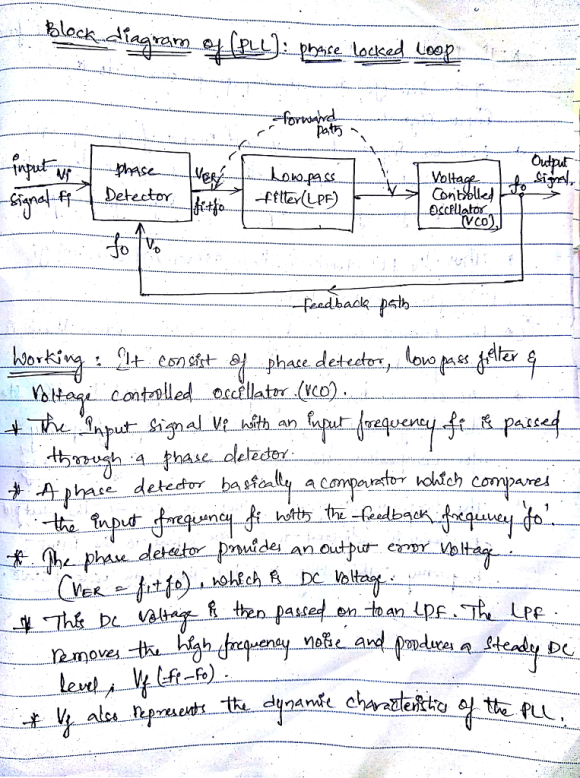 Block diagram of (PLL): phase locked loop
forward
path
input Vi
Signal fi
phase
Detector
VER
fi+fo
Low pass
filter(LPF)
Voltage
Controlled
Oscillator
(VCO)
fo
Output
Signal.
fo Vo
feedback path
Working : It consist of phase detector, low pass filter &
Voltage controlled oscillator (VCO).
* The Input signal Vi with an input frequency fi is passed
through a phase detector.
* A phase detector basically a comparator which compares
the input frequency fi with the feedback frequency 'fo'.
* The phase detector provides an output error voltage.
(VER = fi+fo), which is DC voltage.
* This DC voltage is then passed on to an LPF. The LPF.
removes the high frequency noise and produces a steady DC
level, Vf (-fi-Fo).
* Vf also represents the dynamic characteristics of the PLL.